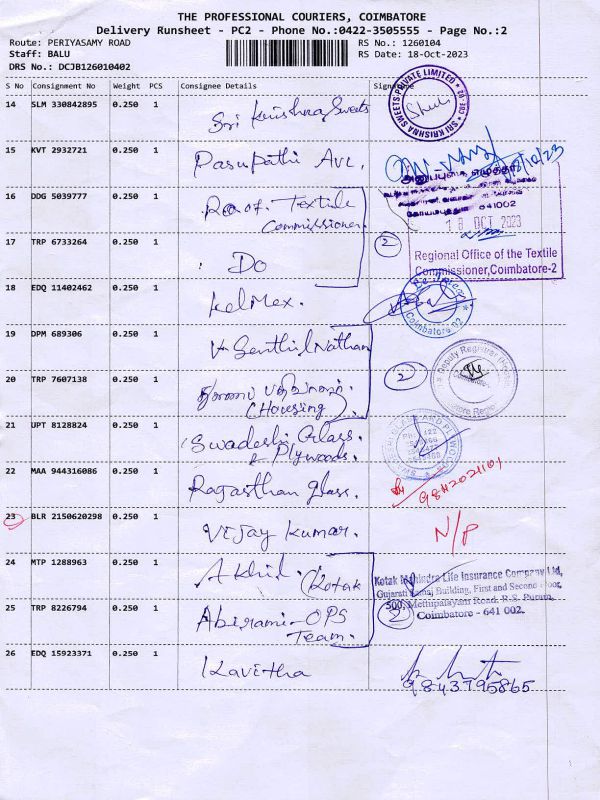 THE PROFESSIONAL COURIERS, COIMBATORE
Delivery Runsheet - PC2 - Phone No.:0422-3505555 - Page No.:2
Route: PERIYASAMY ROAD
Staff: BALU
DRS No.: DCJB126010402
RS No.: 1260104
RS Date: 18-Oct-2023
S No Consignment No Weight PCS Consignee Details Signature
14 SLM 330842895 0.250 1 Sri Krishna Sweets
SRI KRISHNA SWEETS PRIVATE LIMITED
15 KVT 2932721 0.250 1 Pasupathi Ave.
641002
16 DDG 5039777 0.250 1 Textile
Commissioner.
18 OCT 2023
17 TRP 6733264 0.250 1 Do
2
Regional Office of the Textile
Commissioner, Coimbatore-2
18 EDQ 11402462 0.250 1 KelMex.
Coimbatore
19 DPM 689306 0.250 1 Senthil Nathan
Deputy Registrar
20 TRP 7607138 0.250 1
(Housing)
2
21 UPT 8128824 0.250 1 Swadeshi Glass
& Plywoods.
22 MAA 944316086 0.250 1 Rajasthan glass.
9842021101
23 BLR 2150620298 0.250 1 Vijay Kumar.
N/P
24 MTP 1288963 0.250 1 Akhil. (Kotak
Kotak Mahindra Life Insurance Company Ltd,
Gujarati Samaj Building, First and Second Floor,
25 TRP 8226794 0.250 1 Abirami-OPS
Team.
500, Mettupalayam Road, R.S. Puram,
Coimbatore - 641 002.
2
26 EDQ 15923371 0.250 1 Kavitha
9843795865